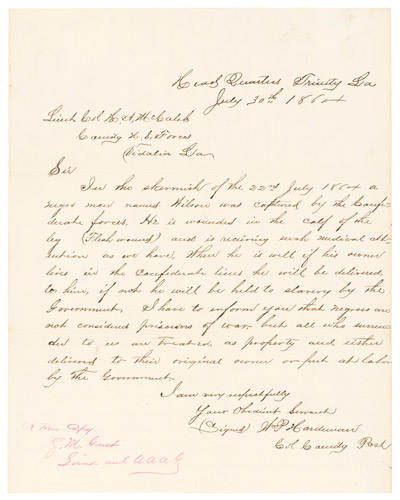 Head Quarters Trinity La
July 30th 1864
Lieut Col H A McCaleb
Comdg U.S. Forces
Vidalia La
Sir
In the skirmish of the 22nd July 1864 a
negro man named Wilson was captured by the Confe-
derate forces. He is wounded in the calf of the
leg (Flesh wound) and is reciving such medical at-
tention as we have, When he is well if his owner
lives in the Confederate lines he will be delivered
to him, if not he will be held to slavery by the
Government. I have to inform you that negroes are
not considered prisoners of war. but all who surren-
der to us are treated as property and either
delivered to their original owner or put at labor
by the Government.
I am very respectfully
Your Obedient Servant
(Signed) A P Hardeman
Col Comdg Post
A true Copy